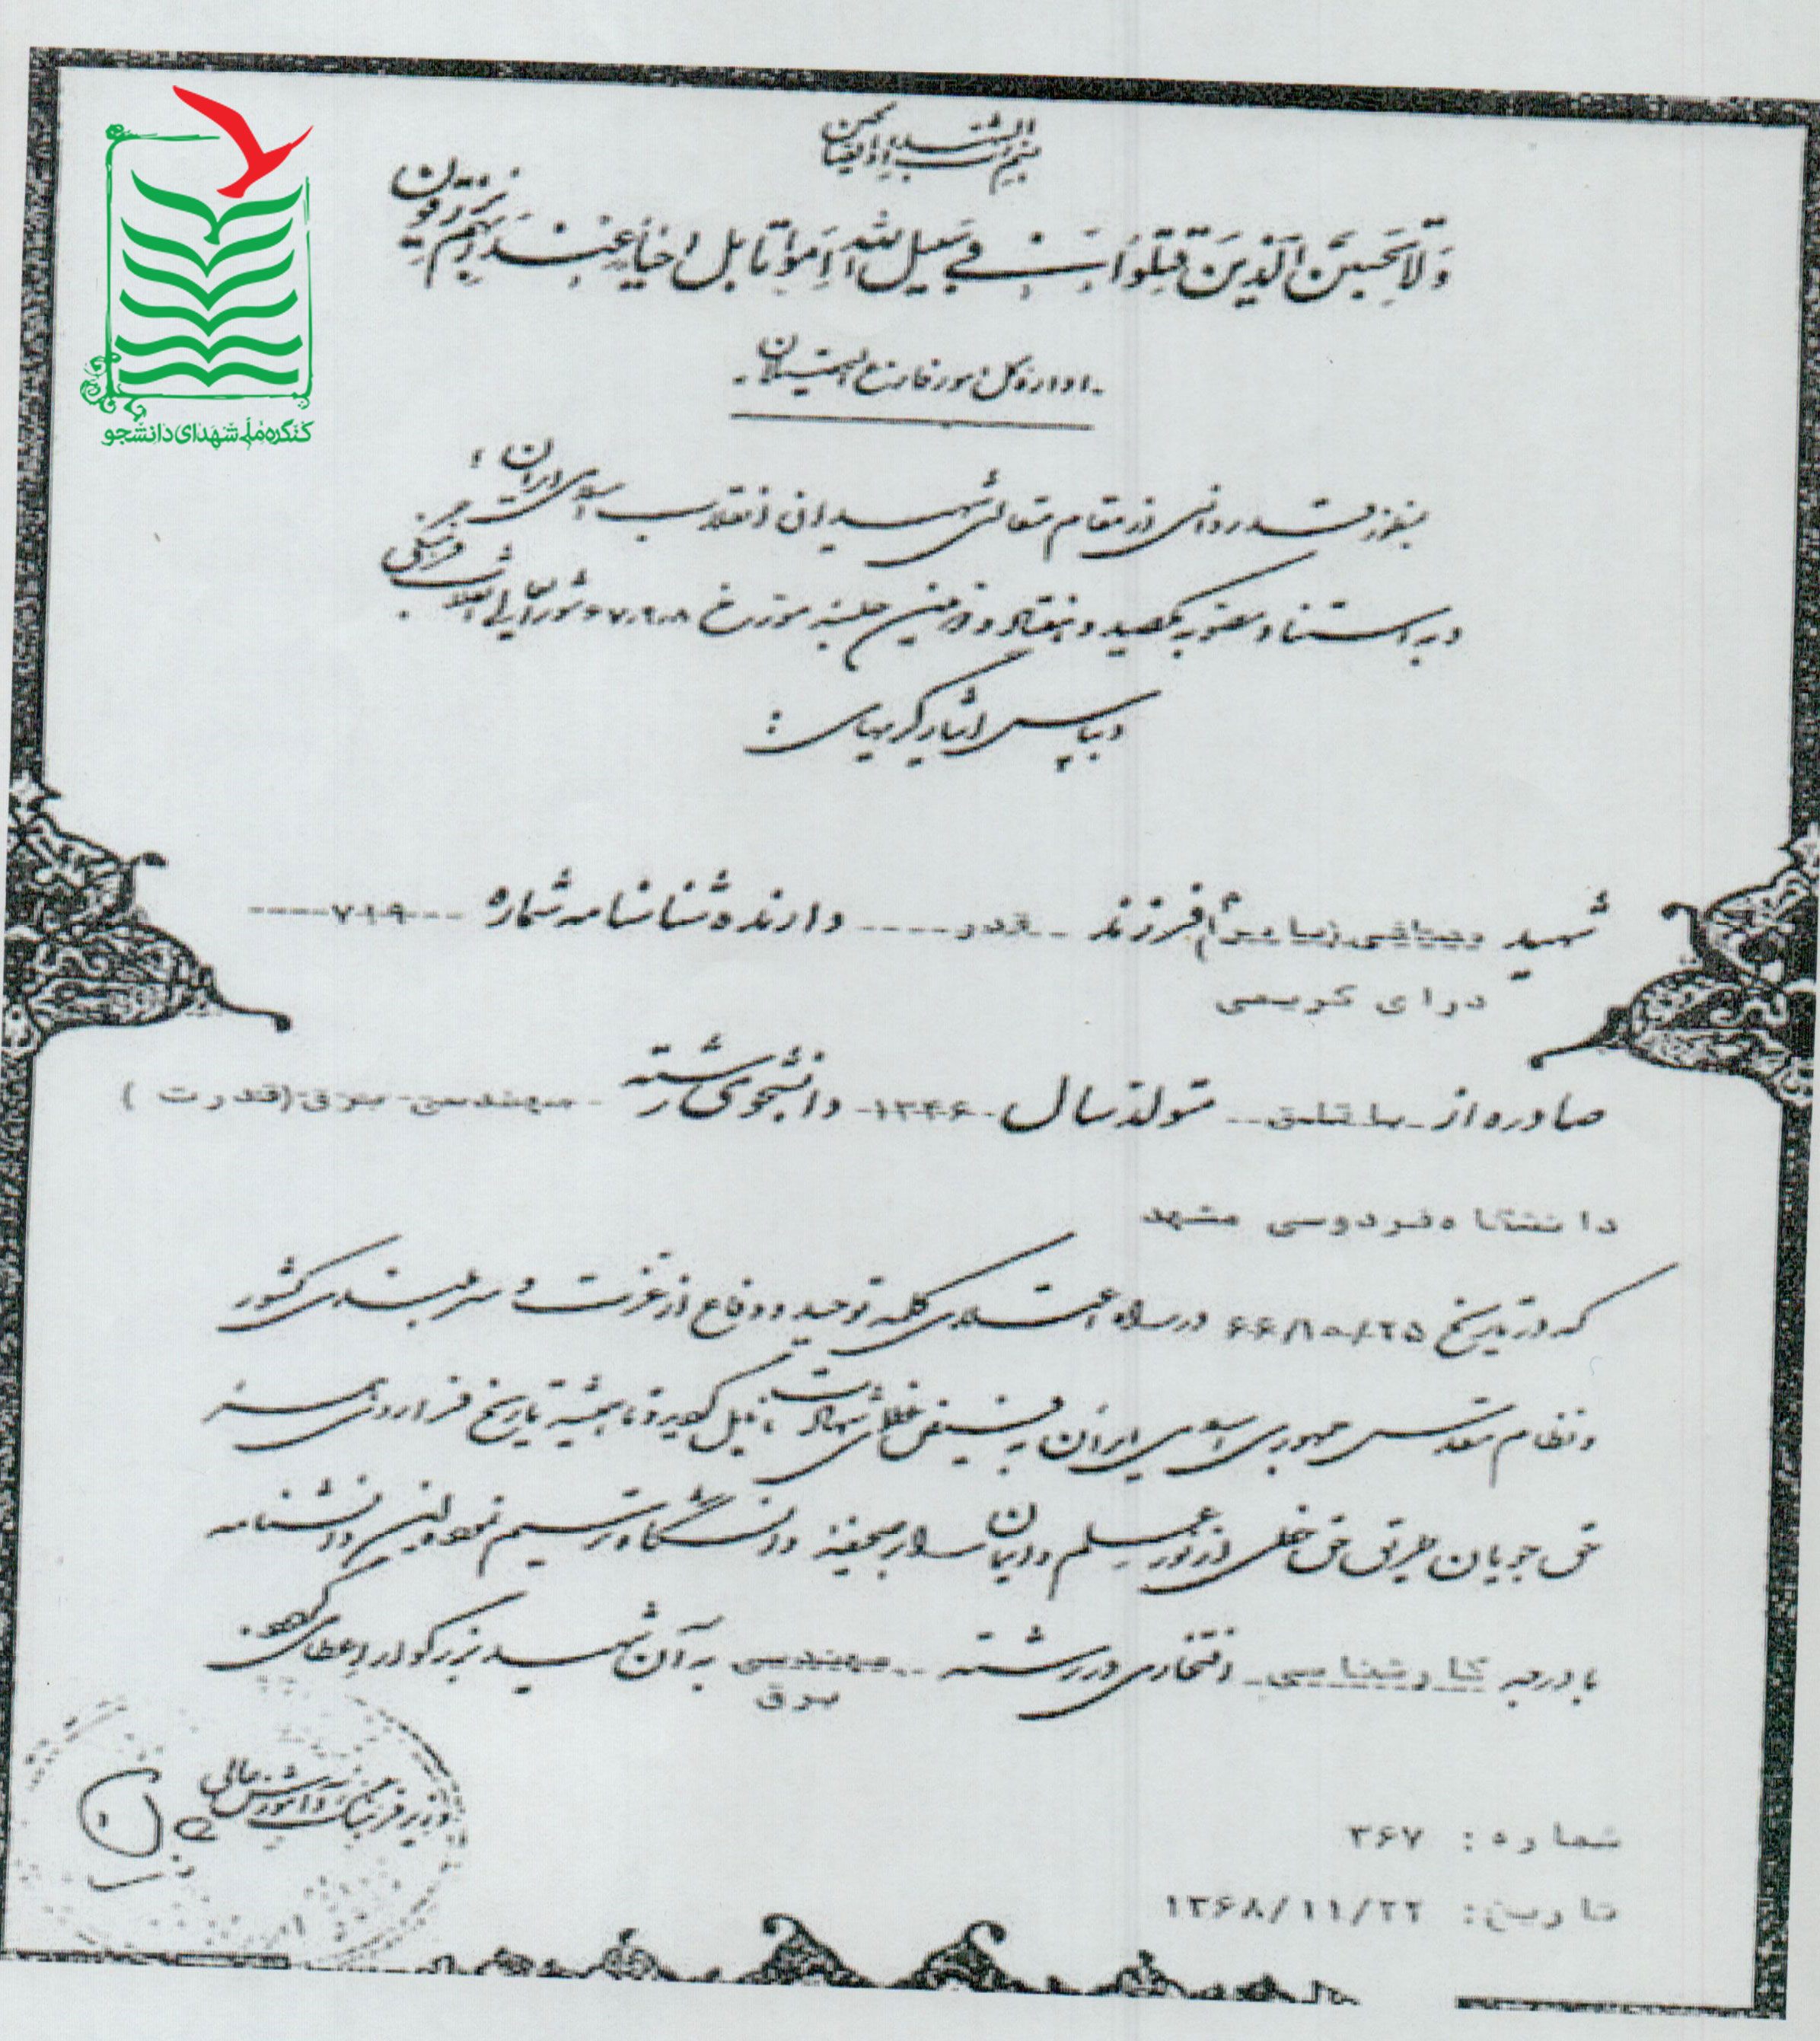 بسم رب الشهداء و الصدیقین
وَلا تَحسَبَنَّ الَّذینَ قُتِلوُا فی سَبیلِ اللهِ اَمواتا بَل احیاءٌ عِندَ رَبِّهِم یُرزَقون
اداره کل امور فارغ التحصیلان
کنگره ملی شهدای دانشجو
بمنظور قدردانی از مقام متعالی شهیدان انقلاب اسلامی ایران؛
و به استناد مصوبه یکصد و هفتاد و دومین جلسه مورخ ۶۷٫۹٫۸ شورایعالی انقلاب فرهنگی
و بپاس ایثارگریهای :
شهید فرزند دارنده شناسنامه شماره ۷۱۹
کریمی
صادره از متولد سال ۱۳۴۶ دانشجوی رشته مهندسی برق (قدرت )
دانشگاه فردوسی مشهد
که در تاریخ ۶۶/۱۰/۲۵ در راه اعتلای کلمه توحید و دفاع از عزت و سربلندی کشور
و نظام مقدس جمهوری اسلامی ایران به فیض عظمای شهادت نایل گردید و تا همیشه تاریخ فرا روی همه
حق جویان طریق حق خطی از نور علم و ایمان را بر صحیفه دانشگاه ترسیم نمود این دانشنامه
با درجه کارشناسی افتخاری در رشته مهندسی به آن شهید بزرگوار اعطا می گردد.
برق
وزیر فرهنگ و آموزش عالی
شماره : ۳۶۷
تاریخ: ۱۳۶۸/۱۱/۲۲